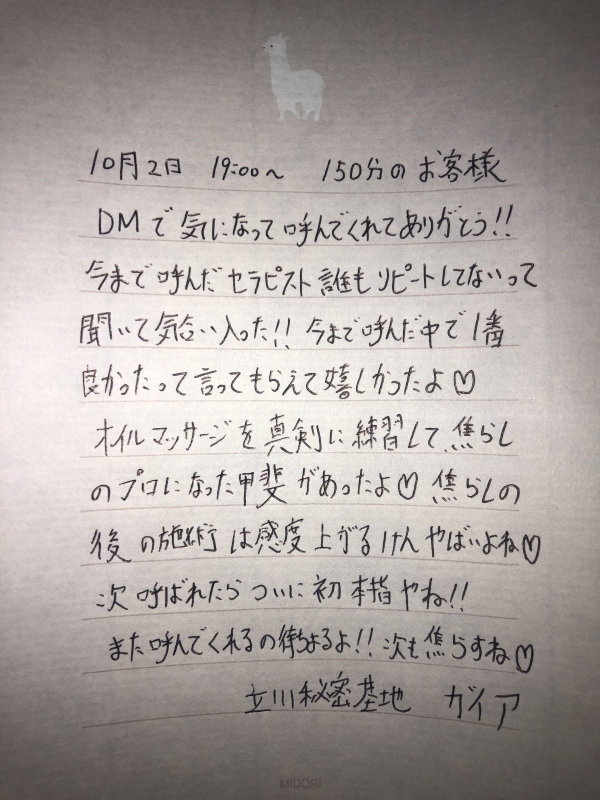 10月2日 19:00〜 150分のお客様
DMで気になって呼んでくれてありがとう!!
今まで呼んだセラピスト誰もリピートしてないって
聞いて気合い入った!! 今まで呼んだ中で1番
良かったって言ってもらえて嬉しかったよ♡
オイルマッサージを真剣に練習して焦らし
のプロになった甲斐があったよ♡ 焦らしの
後の施術は感度上がるけんやばいよね♡
次呼ばれたらついに初本指やね!!
また呼んでくれるの待ちよるよ!! 次も焦らすね♡
立川秘密基地 ガイア
MIDORI